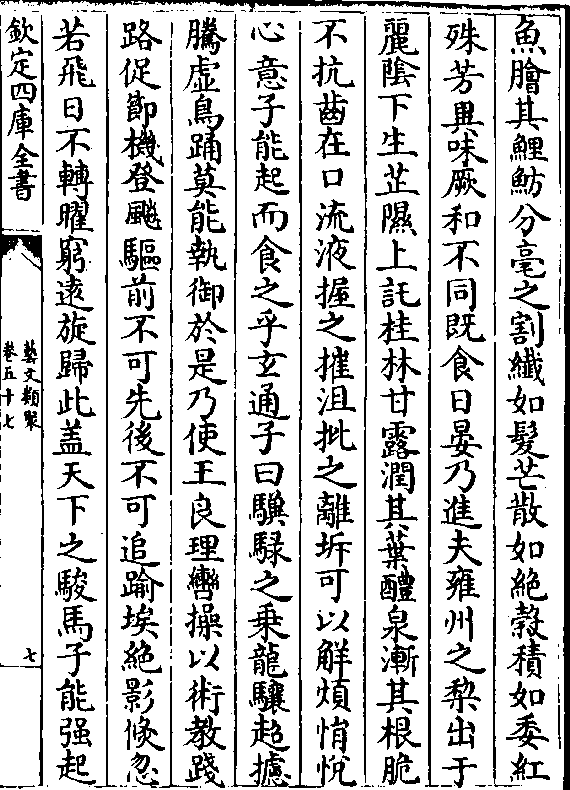 魚膾其鯉魴分毫之割纖如髮芒散如絶縠積如委紅
殊芳異味厥和不同既食日晏乃進夫雍州之梨出于
麗隂下生芷隰上託桂林甘露潤其葉醴泉漸其根脆
不抗齒在口流液握之摧沮批之離坼可以解煩悁悅
心意子能起而食之乎玄通子曰騏騄之乗龍驤超攄
騰虚鳥踊莫能執御於是乃使王良理轡操以術教踐
路促節機登飈驅前不可先後不可追踰埃絶影倐忽
若飛日不轉曜窮逺旋歸此盖天下之駿馬子能强起
欽定四庫全書
藝文類聚
卷五十七
七